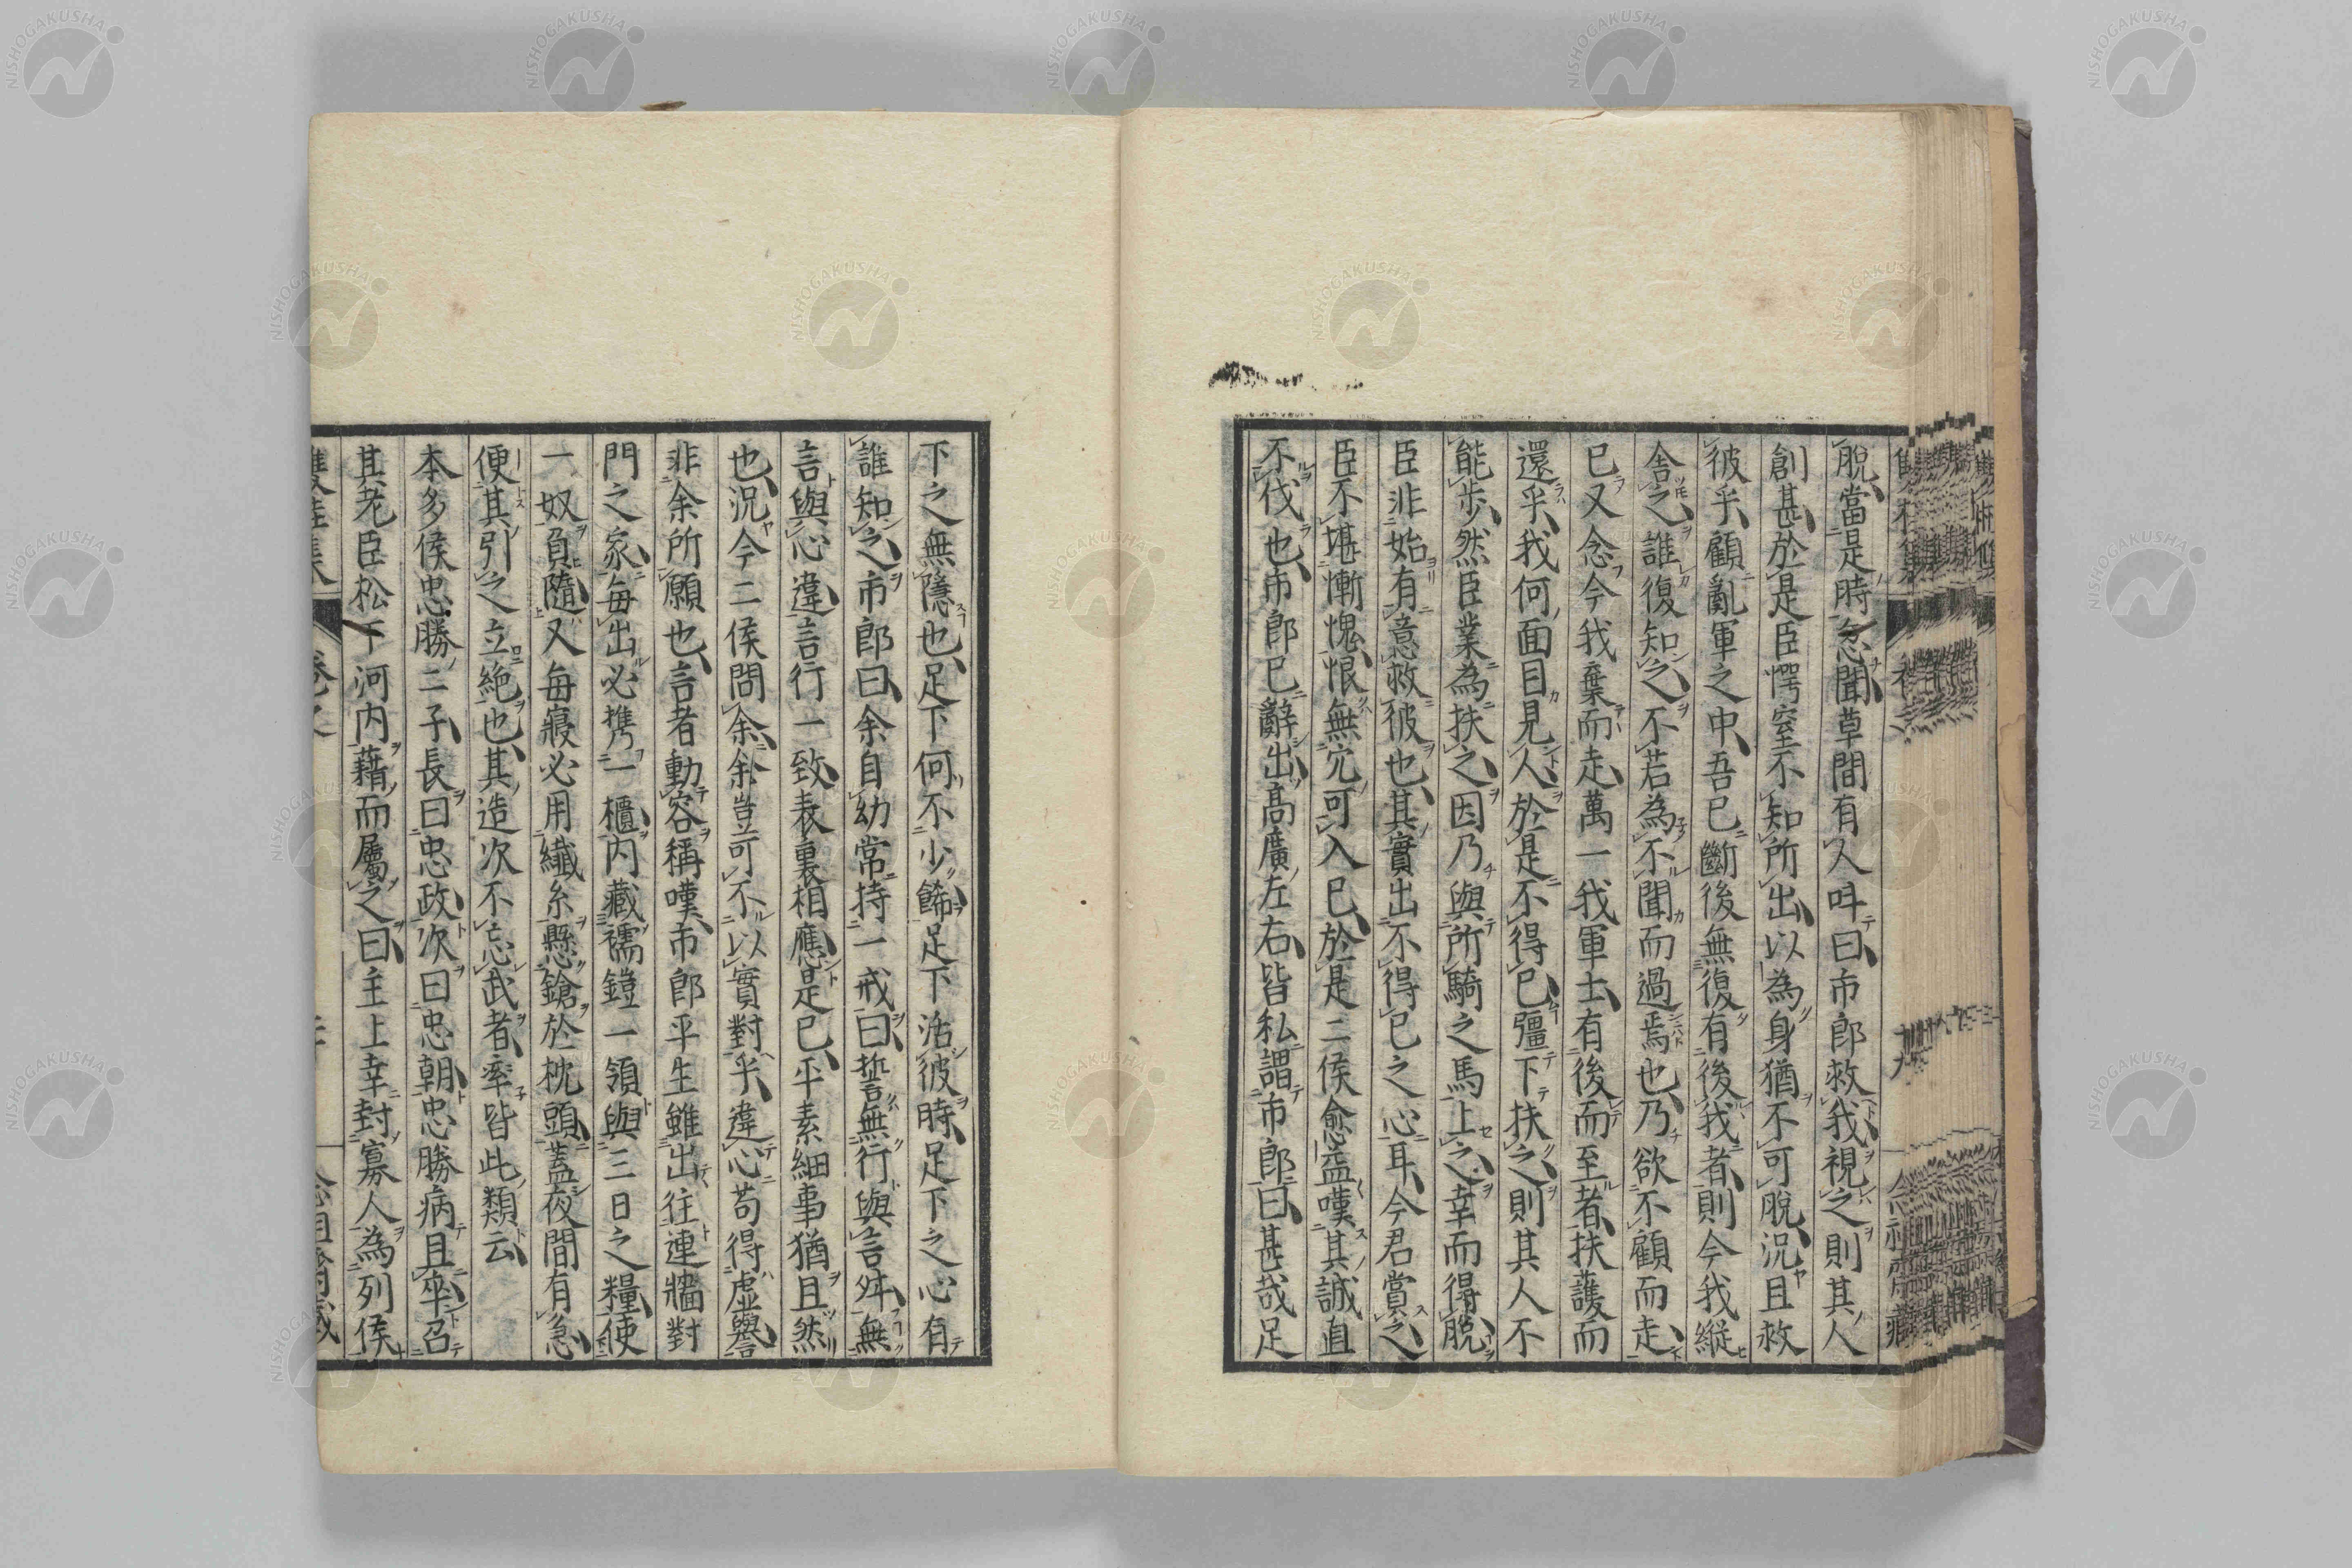 脫當是時忽聞草間有人呌曰市郎救我視之則其人
創甚於是臣愕窒不知所出以為身猶不可脫況且救
彼乎顧亂軍之中吾已斷後無復有後我者則今我縱
舍之誰復知之不若為不聞而過焉也乃欲不顧而走
已又念今我棄而走萬一我軍士有後而至者扶護而
還乎我何面目見人於是不得已彊下扶之則其人不
能步然臣業為扶之因乃與所騎之馬上之幸而得脫
臣非始有意救彼也其實出不得已之心耳今君賞之
臣不堪慚愧恨無穴可入已於是二侯愈益嘆其誠直
不伐也市郎已辭出高廣左右皆私謂市郎曰甚哉足
下之無隱也足下何不少餙足下活彼時足下之心有
誰知之市郎曰余自幼常持一戒曰誓無行與言舛無
言與心違言行一致表裏相應是已平素細事猶且然
也況今二侯問余余豈可不以實對乎違心苟得虛譽
非余所願也言者動容稱嘆市郎平生雖出往連牆對
門之家每出必攜一櫃內藏襦鎧一領與三日之糧使
一奴負隨又每寢必用纖糸懸鎗於枕頭蓋夜間有急
便其引之立絕也其造次不忘武者率皆此類云
本多侯忠勝二子長曰忠政次曰忠朝忠勝病且卒召
其老臣松下河內藉而屬之曰主上幸封寡人為列侯
NISHOGAKUSHA